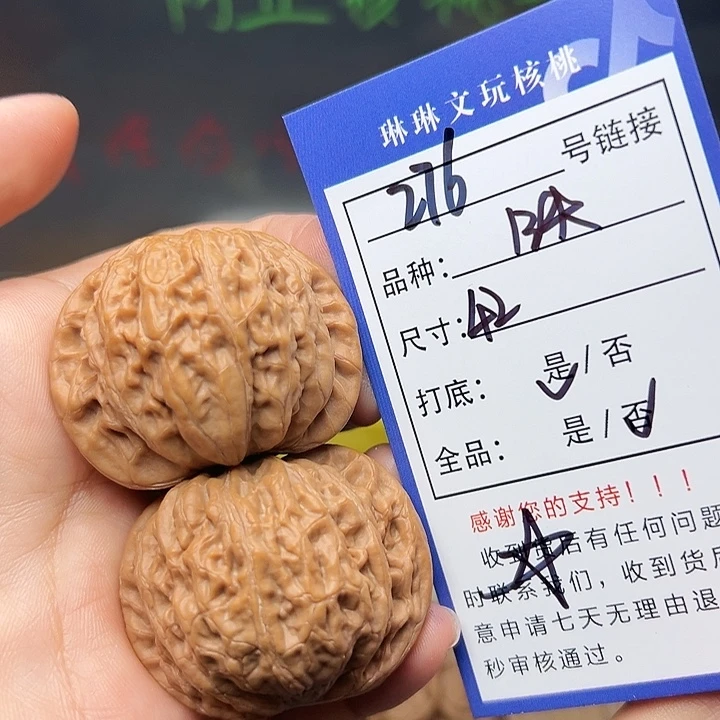 琳琳文玩核桃
276 号链接
品种:
尺寸: 42
打底: 是/否
全品: 是/否
感谢您的支持!!!
收到货后有任何问题
时联系我们,收到货后
意申请七天无理由退
秒审核通过。